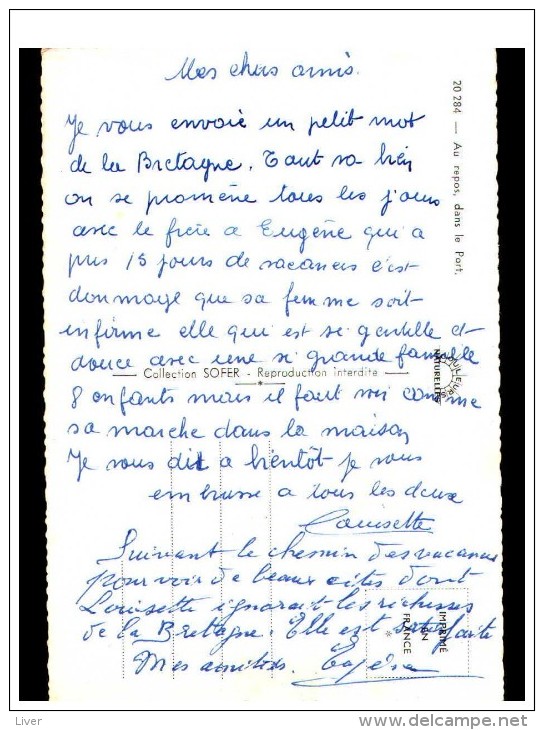 Mes chers amis.
Je vous envoie un petit mot
de la Bretagne. Tout va bien
on se promène tous les jours
avec le frère a Eugène qui a
pris 15 jours de vacances c'est
dommage que sa femme soit
infirme elle qui est si gentille et
douce avec une si grande famille
8 enfants mais il faut voir comme
sa marche dans la maison
Je vous dit a bientôt je vous
embrasse a tous les deux
Louisette
Suivant le chemin des vacances
pour voir de beaux sites dont
Louisette ignorait les richesses
de la Bretagne. Elle est satisfaite
Mes amitiés. Eugène
20 284 — Au repos, dans le Port.
Collection SOFER - Reproduction interdite
NATURELLES
IMPRIMÉ
EN
FRANCE
Liver
http://www.delcampe.net